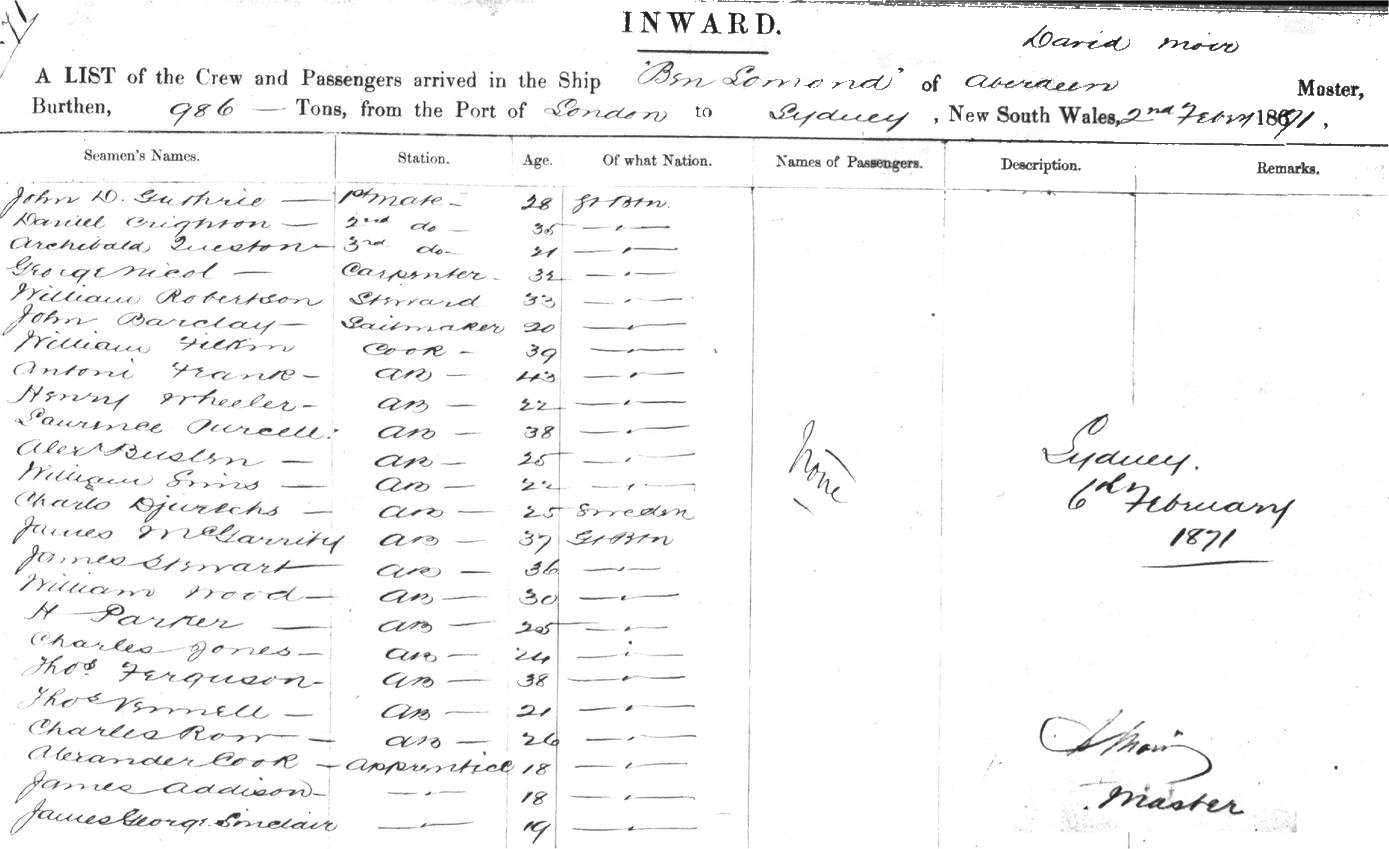 INWARD.
David Moir
A LIST of the Crew and Passengers arrived in the Ship "Ben Lomond" of Aberdeen Master,
Burthen, 986 — Tons, from the Port of London to Sydney, New South Wales, 2nd Febry 1871.
Seamen's Names. Station. Age. Of what Nation. Names of Passengers. Description. Remarks.
John D. Guthrie — 1st Mate — 28 Gt Btn.
Daniel Crighton — 2nd do — 35 — " —
Archibald Queston — 3rd do — 21 — " —
George Nicol — Carpenter — 32 — " —
William Robertson Steward 33 — " —
John Barclay — Sailmaker 20 — " —
William Filkin Cook — 39 — " —
Antoni Frank — AB — 43 — " —
Henry Wheeler — AB — 22 — " —
Laurence Purcell AB — 38 — " —
Alexr Busten — AB — 25 — " —
William Sims — AB — 22 — " —
Charls AB — 25 Sweden
James McGarrity AB — 37 Gt Btn
James Stewart AB — 36 — " —
William Wood — AB — 30 — " —
H Parker — AB — 25 — " —
Charles Jones — AB — 24 — " —
Thos Ferguson — AB — 38 — " —
Thos Vennell — AB — 21 — " —
Charles Row — AB — 26 — " —
Alexander Cook — Apprentice 18 — " —
James Addison — — " — 18 — " —
James George Sinclair — " — 19 — " —
None
Sydney.
6th February
1871
D Moir
Master